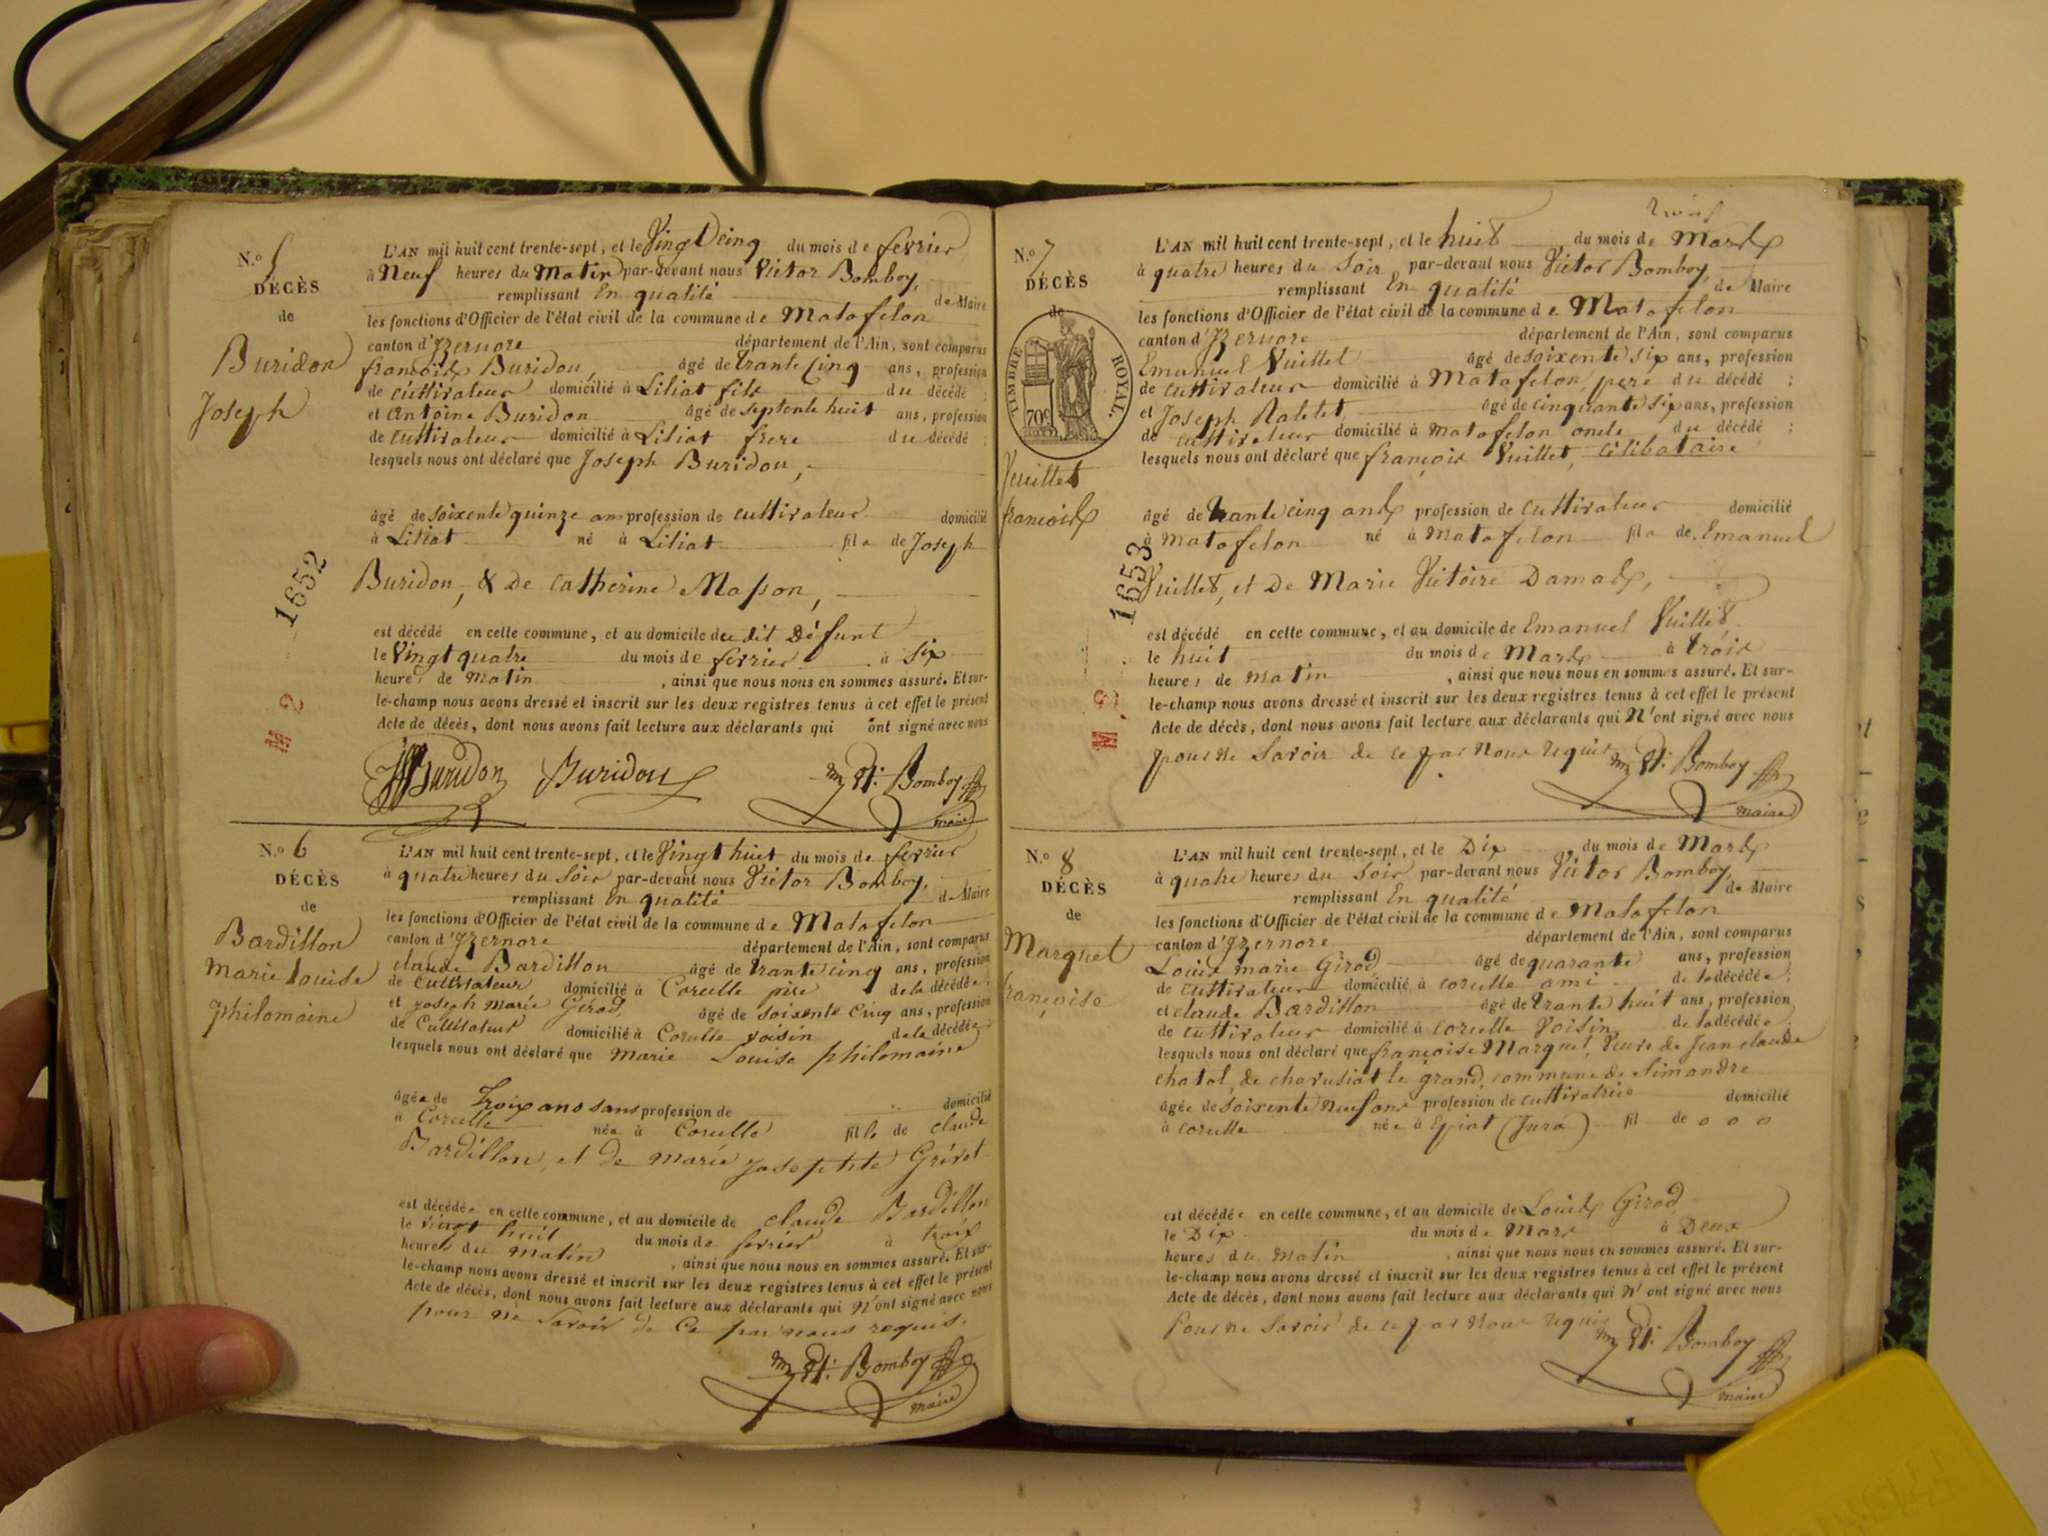 N.o 5
DÉCÈS
de
Buridon
Joseph
L'AN mil huit cent trente-sept, et le Vingt Cinq du mois de fevrier
à Neuf heures du Matin par-devant nous Victor Bomboy,
remplissant En qualité de Maire
les fonctions d'Officier de l'état civil de la commune de Matafelon
canton d'Izernore département de l'Ain, sont comparus
françois Buridon, âgé de trante Cinq ans, profession
de cultivateur domicilié à Liliat fils du décédé ;
et Antoine Buridon âgé de septente huit ans, profession
de cultivateur domicilié à Liliat frere du décédé ;
lesquels nous ont déclaré que Joseph Buridon,
âgé de soixente quinze ans profession de cultivateur domicilié
à Liliat né à Liliat fils de Joseph
Buridon, & De Catherine Masson,
est décédé en cette commune, et au domicile du dit Défunt
le Vingt quatre du mois de fevrier à Six
heures de Matin, ainsi que nous nous en sommes assuré. Et sur-
le-champ nous avons dressé et inscrit sur les deux registres tenus à cet effet le présent
Acte de décès, dont nous avons fait lecture aux déclarants qui ont signé avec nous
Buridon Buridon Bomboy
maire
1652
M 2
N.o 6
DÉCÈS
de
Bardillon
Marie Louise
philomaine
L'AN mil huit cent trente-sept, et le Vingt huit du mois de fevrier
à quatre heures du Soir par-devant nous Victor Bomboy,
remplissant En qualité de Maire
les fonctions d'Officier de l'état civil de la commune de Matafelon
canton d'Izernore département de l'Ain, sont comparus
claude Bardillon âgé de trante cinq ans, profession
de cultivateur domicilié à Corcelle père de la décédée ;
et joseph Marie Girod, âgé de soixente Cinq ans, profession
de Cultivateur domicilié à Corcelle voisin de la décédée
lesquels nous ont déclaré que Marie Louise philomaine
âgée de Troix ans sans profession de domicilié
à Corcelle née à Corcelle fille de claude
Bardillon, et de marie josephte Grivet
est décédée en cette commune, et au domicile de claude Bardillon
le vingt huit du mois de fevrier à troix
heures du Matin, ainsi que nous nous en sommes assuré. Et sur-
le-champ nous avons dressé et inscrit sur les deux registres tenus à cet effet le présent
Acte de décès, dont nous avons fait lecture aux déclarants qui N'ont signé avec nous
pour ne Savoir de Ce par nous requis.
Bomboy
maire
N.o 7
DÉCÈS
de
TIMBRE ROYAL.
70c
Vuillet
françois
L'AN mil huit cent trente-sept, et le huit du mois de Mars
à quatre heures du Soir par-devant nous Victor Bomboy,
remplissant En qualité de Maire
les fonctions d'Officier de l'état civil de la commune de Matafelon
canton d'Izernore département de l'Ain, sont comparus
Emanuel Vuillet âgé de soixente six ans, profession
de cultivateur domicilié à Matafelon, pere du décédé ;
et Joseph Ratelet, âgé de cinquante six ans, profession
de cultivateur domicilié à matafelon oncle du décédé ;
lesquels nous ont déclaré que françois Vuillet, célibataire
âgé de trante cinq ans profession de cultivateur domicilié
à Matafelon né à Matafelon fils de Emanuel
Vuillet, et De Marie Victoire Damas,
est décédé en cette commune, et au domicile de Emanuel Vuillet
le huit du mois de Mars à trois
heures de Matin, ainsi que nous nous en sommes assuré. Et sur-
le-champ nous avons dressé et inscrit sur les deux registres tenus à cet effet le présent
Acte de décès, dont nous avons fait lecture aux déclarants qui N'ont signé avec nous
pour ne Savoir de ce par Nous requis
Bomboy
maire
1653
M
N.o 8
DÉCÈS
de
Marquet
françoise
L'AN mil huit cent trente-sept, et le Dix du mois de Mars
à quatre heures du Soir par-devant nous Victor Bomboy,
remplissant En qualité de Maire
les fonctions d'Officier de l'état civil de la commune de Matafelon
canton d'Izernore département de l'Ain, sont comparus
Louis marie Girod âgé de quarante ans, profession
de cultivateur domicilié à corcelle ami de la décédée ;
et claude Bardillon âgé de trante huit ans, profession
de cultivateur domicilié à corcelle Voisin de la décédée
lesquels nous ont déclaré que françoise Marquet, Veuve de Jean claude
chatal, de chavusiat le grand, commune de Simandre
âgée de soixente neuf ans profession de cultivatrice domicilié
à corcelle née à Epiat (Jura) fil de o o o
est décédée en cette commune, et au domicile de Louis Girod
le Dix du mois de Mars à Deux
heures du Matin, ainsi que nous nous en sommes assuré. Et sur-
le-champ nous avons dressé et inscrit sur les deux registres tenus à cet effet le présent
Acte de décès, dont nous avons fait lecture aux déclarants qui N'ont signé avec nous
Pour ne Savoir de ce par Nous requis
Bomboy
maire